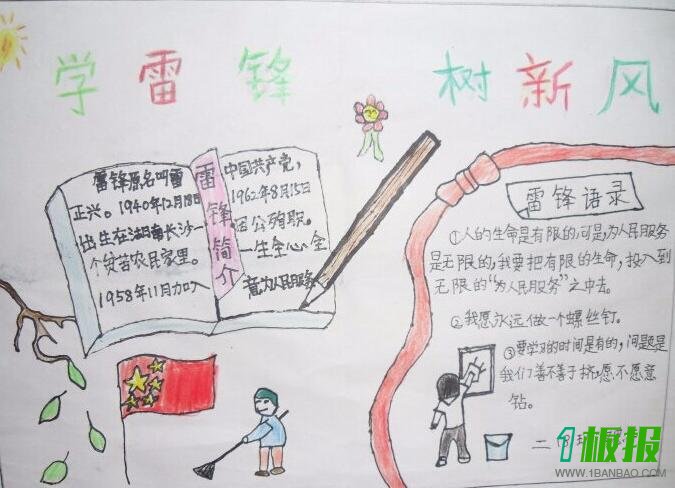 学雷锋 树新风
雷锋原名叫雷
正兴。1940年12月18日
出生在湖南长沙一
个贫苦农民家里。
1958年11月加入
雷锋简介
中国共产党,
1962年8月15日
因公殉职。
一生全心全
意为人民服务
雷锋语录
①人的生命是有限的,可是,为人民服务
是无限的,我要把有限的生命,投入到
无限的“为人民服务”之中去。
②我愿永远做一个螺丝钉。
③要学习的时间是有的,问题是
我们善不善于挤,愿不愿意
钻。
二
1板报
WWW.1BANBAO.COM